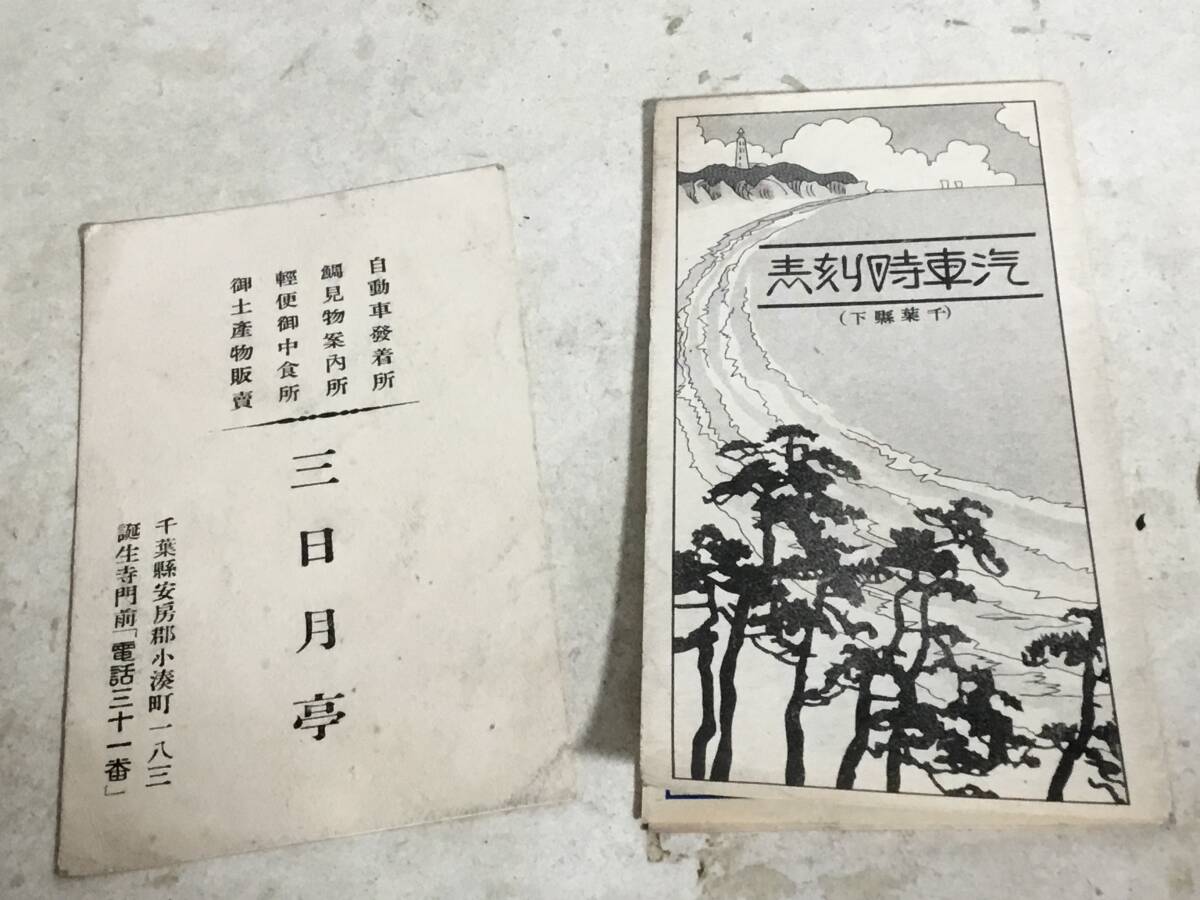 自動車發着所
鯛見物案內所
輕便御中食所
御土產物販賣
三日月亭
千葉縣安房郡小湊町一八三
誕生寺門前「電話三十一番」
汽車時刻表
(千葉縣下)